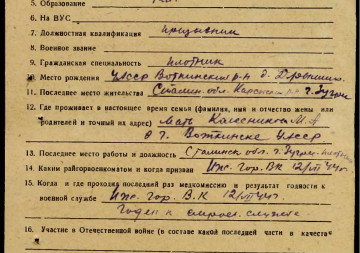 5. Образование
6. На ВУС
7. Должностная квалификация призывник
8. Военное звание
9. Гражданская специальность плотник
10. Место рождения УАССР Воткинский р-н д.
11. Последнее место жительства Сталин. обл.
12. Где проживает в настоящее время семья (фамилия, имя и отчество жены или
родителей и точный их адрес) Мать Колесникова М. А
в г. Воткинске УАССР
13. Последнее место работы и должность Сталинск. обл. г.
14. Каким райгорвоенкоматом и когда призван Иж. гор. ВК 12/VII 44 г.
15. Когда и где проходил последний раз медкомиссию и результат годности к
военной службе Иж. гор. В.К 12/VII 44 г.
Годен к строев. службе
16. Участие в Отечественной войне (в составе какой последней части в качестве